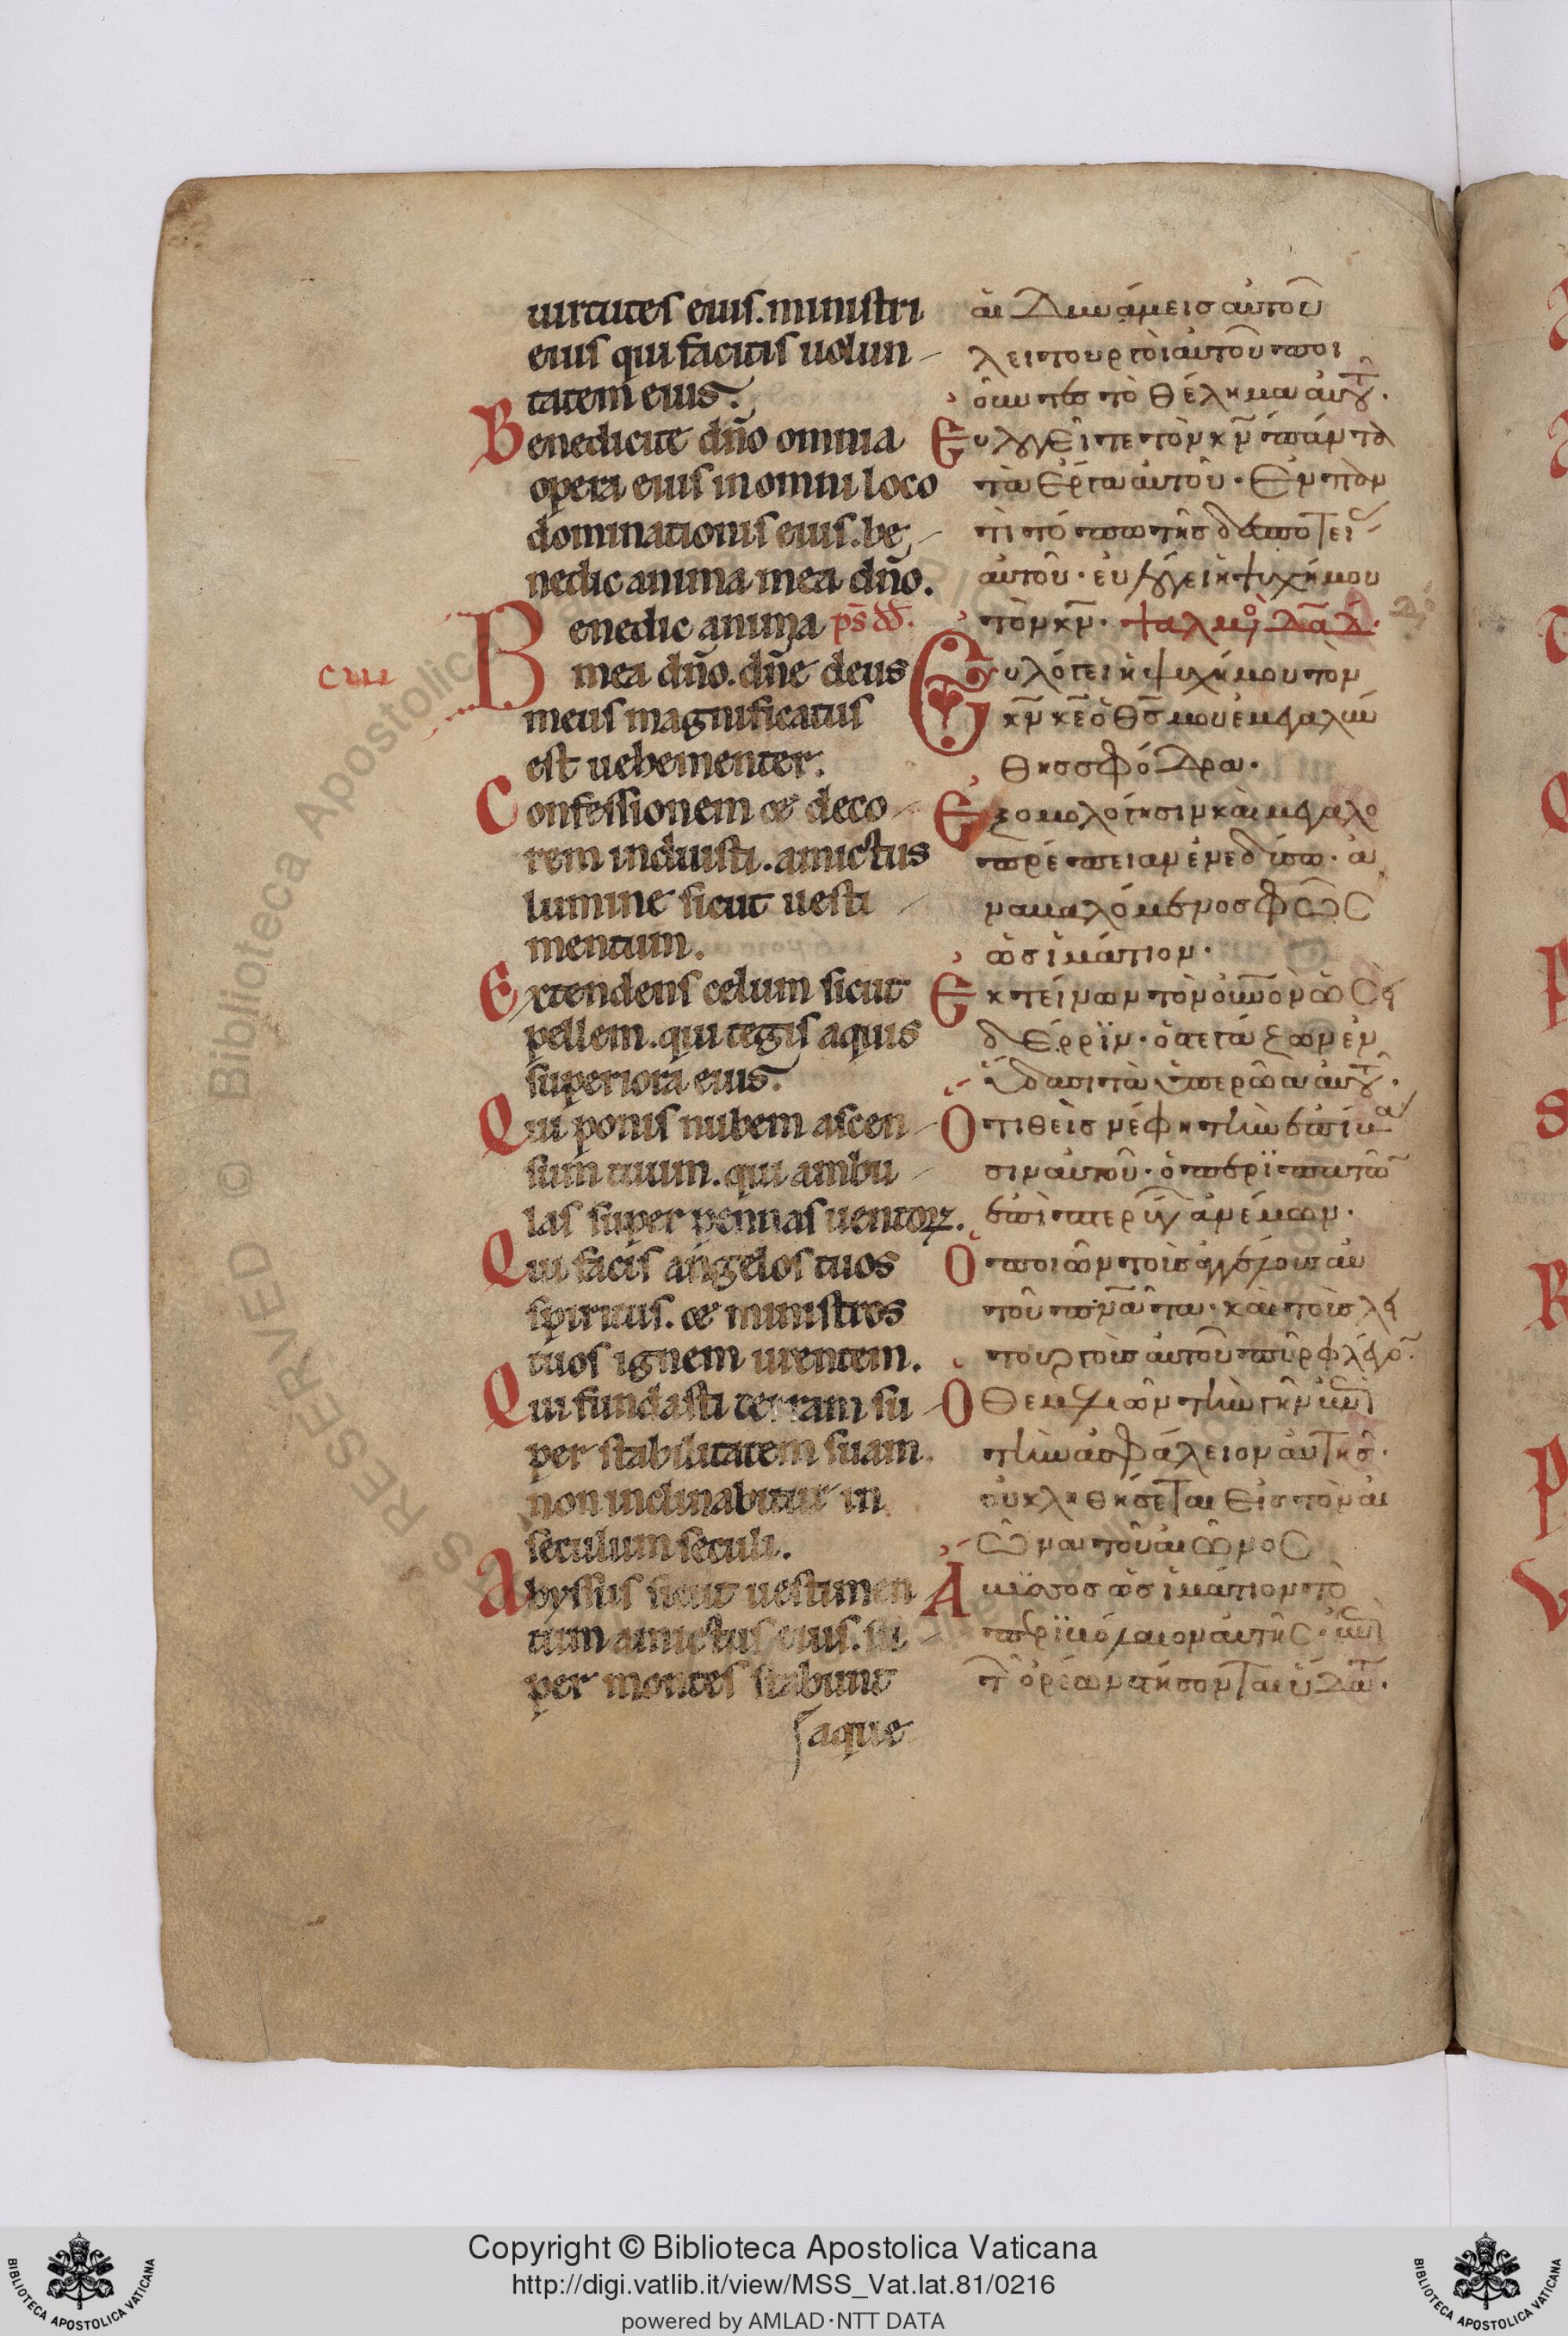 uirtutes eius. ministri
eius qui facitis uolun-
tatem eius.
Benedicite dño omnia
opera eius in omni loco
dominationis eius. be-
nedic anima mea dño.
Benedic anima ps̄ dd̄.
ciii
mea dño. dñe deus
meus magnificatus
est uehementer.
Confessionem & deco-
rem induisti. amictus
lumine sicut uesti-
mentum.
Extendens celum sicut
pellem. qui tegis aquis
superiora eius.
Qui ponis nubem ascen-
sum tuum. qui ambu-
las super pennas uentoꝝ.
Qui facis angelos tuos
spiritus. & ministros
tuos ignem urentem.
Qui fundasti terram su-
per stabilitatem suam.
non inclinabitur in
seculum seculi.
Abyssus sicut uestimen-
tum amictus eius. su-
per montes stabunt
aque
αἱ Δυνάμεισ αὐτοῦ
λειτουργοὶ αὐτοῦ ποι
οῦντεσ τὸ θέλημα αὐτοῦ.
Ευλογεῖτε τὸν κ̄ν πάντα
τὰ ἔργα αὐτοῦ. Ἐν παν
τὶ τόπω τῆσ δεσποτεί
αὐτοῦ. εὐλόγει ἡ ψυχή μου
τὸν κ̄ν. ψαλμὸ
Ευλόγει ἡ ψυχή μου τὸν
κ̄ν κ̄ε ὁ θ̄σ μου ἐμεγαλύν
θησ σφόδρα.
Εξομολόγησιν καὶ μεγαλο
πρέπειαν ἐνεδύσω. ἀ
ναβαλόμενοσ φῶς
ὡσ ἱμάτιον.
Εκτείνων τὸν οὐν̄ον ὡς
δέρριν. ὁ στεγάζων ἐν
ὕδασι τὰ ὑπερῶα αὐτοῦ.
Ο τιθεὶσ νέφη τὴν ἐπίβα
σιν αὐτοῦ. ὁ περϊπατῶ
ἐπὶ πτερύγ ἀνέμων.
Ο ποιῶν τοὺσ ἀγγέλουσ αὐ
τοῦ πν̄ατα. καὶ τοὺσ λει
τουργοὺσ αὐτοῦ πῦρ φλέγο
Ο θεμελιῶν τὴν γῆν ἐπὶ
τὴν ἀσφάλειαν αὐτῆσ.
οὐ κληθήσεται εἰσ τὸν αἰ
ῶνα τοῦ αἰῶνος
Αβϋσσοσ ὡσ ἱμάτιον τὸ
περϊβόλαιον αὐτῆς. ἐπὶ
τ ὀρέων στήσονται ὕδατ.
Copyright © Biblioteca Apostolica Vaticana
http://digi.vatlib.it/view/MSS_Vat.lat.81/0216
powered by AMLAD·NTT DATA